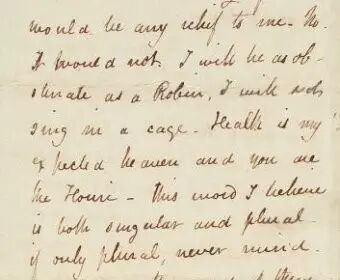 would be any relief to me. No.
It would not. I will be as ob-
stinate as a Robin, I will not
sing in a cage. Health is my
expected heaven and you are
the Houri - this word I believe
is both singular and plural
if only plural, never mind.